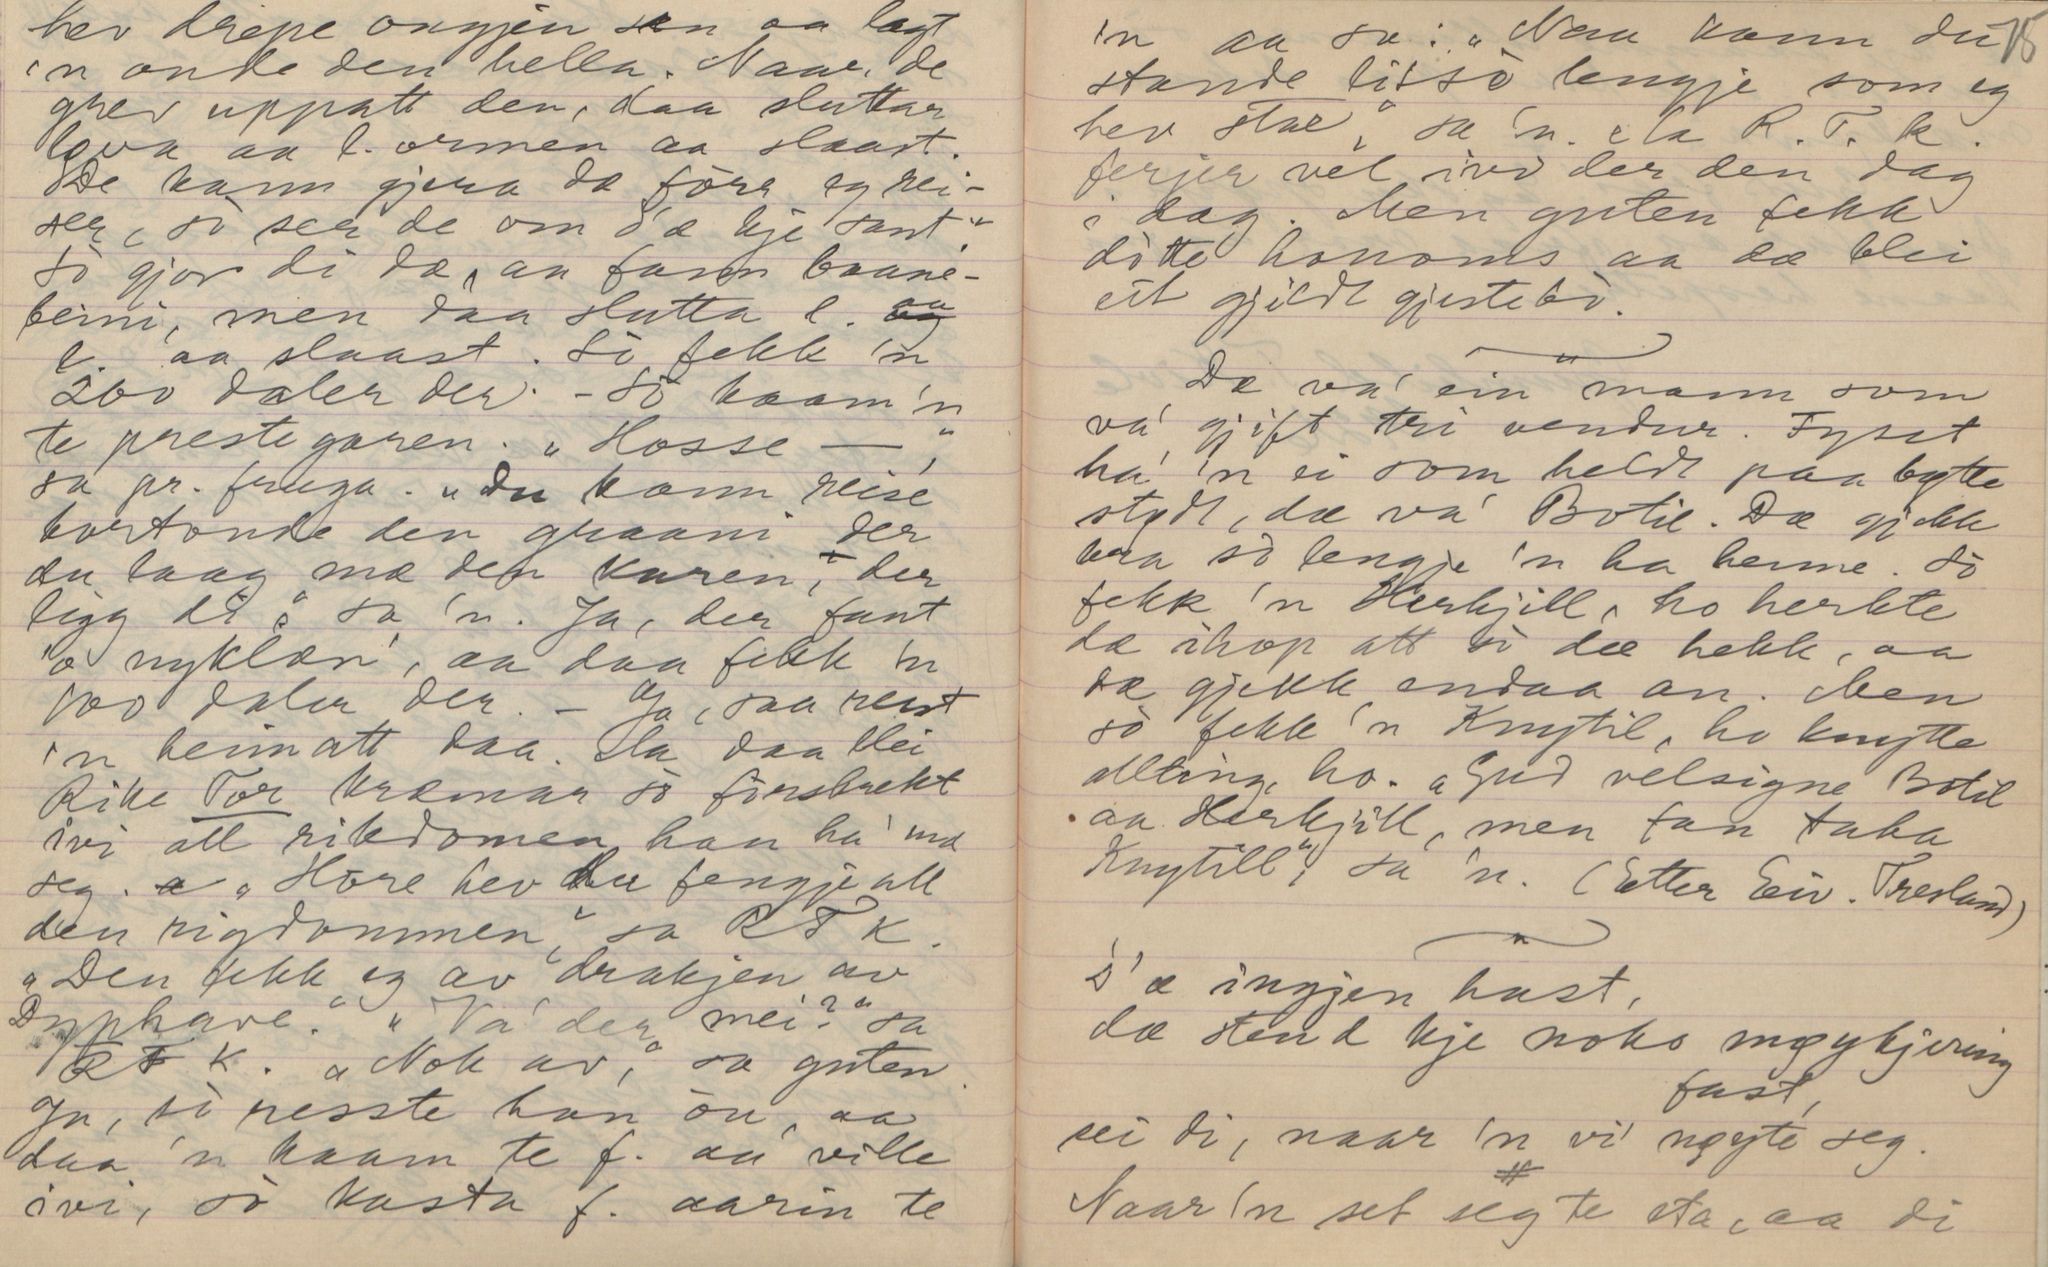 hev drepe ongjen sen aa lagt
'n onde den hella. Naar de
grev uppatt den, daa sluttar
løva aa l. ormen aa slaast.
De kann gjera dæ förr eg rei-
ser, sò seer de om d'æ kje sant."
Sò gjor di dæ, aa fann baane-
beini, men daa slutta l. aa
l. aa slaast. Sò fekk 'n
200 daler der. - Sò kaam 'n
te prestegaren. "Hosse —,"
sa pr. fruga. "Du kann reise
bortonde den graani der
du laag mæ den karen, der
ligg di," sa 'n. Ja, der fant
'o nyklan', aa daa fekk 'n
100 daler der. - Ja, saa reist
'n heimatt daa. Ja daa blei
Rike Tor kræmar sò förskrekt
ivi all rikdomen han ha' mæ
seg. "Hòre hev du fengje all
den rigdommen," sa R T K.
"Den fekk eg av drakjen av
Dyphave." "Va' der mei?" sa
R T K. "Nok av," sa guten.
Ja, sò resste han òu, aa
daa 'n kaam te f. aa ville
ivi, sò kasta f. aarin te
75
'n aa sa: "Naa kann du
stande lissò lengje som eg
hev stae," sa 'n. Ja R. T. K.
ferjer vel ivi der den dag
i dag. Men guten fekk
dòtte honoms aa dæ blei
eit gjildt gjestebò.
"
Dæ va' ein mann som
va' gjift tri vendur. Fysst
ha' 'n ei som heldt paa bytte
stydt, dæ va' Botil. Dæ gjekk
bra sò lengje 'n ha henne. Sò
fekk 'n Herkjill, ho herkte
dæ ihop att sò dæ hekk, aa
dæ gjekk endaa an. Men
sò fekk 'n Knytil, ho knytte
allting, ho. "Gud velsigne Botil
aa Herkjill, men fan taka
Knytill," sa 'n. (Etter Eiv. Tresland)
"
D'æ ingjen hast,
dæ stend kje noko møykjering
fast,
sei di, naar 'n vi' nøyte seg.
Naar 'n set seg te eta, aa di